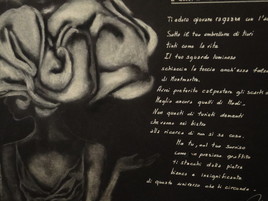 Ti adoro giovane ragazza con l'
Sotto il tuo ombrellone di fiori
tinti come la vita
Il tuo sguardo luminoso
schiaccia la faccia anch'essa
di Montmartre.
Avrei preferito calpestare gli scarti
Meglio ancora quelli di Modì.
Non questi di turisti dementi
che vanno nei bistro
alla ricerca di non si sa cosa.
Ma tu, nel tuo sorriso
come un prezioso graffito
ti stacchi dalla pietra
bianca e insignificante
di questa amicizia che ti circonda.